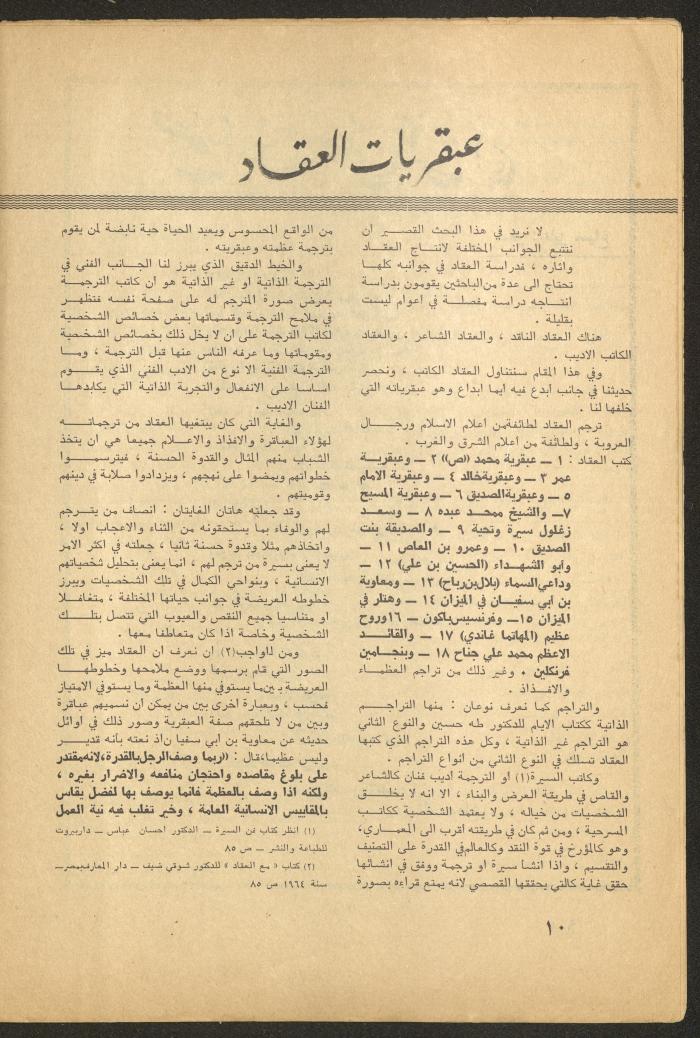 عبقريات العقاد
لا نريد في هذا البحث القصير ان
نتتبع الجوانب المختلفة لانتاج العقاد
واثاره ، فدراسة العقاد في جوانبه كلها
تحتاج الى عدة من الباحثين يقومون بدراسة
انتاجه دراسة مفصلة في اعوام ليست
بقليلة .
هناك العقاد الناقد ، والعقاد الشاعر ، والعقاد
الكاتب الاديب .
وفي هذا المقام سنتناول العقاد الكاتب ، ونحصر
حديثنا في جانب ابدع فيه ايما ابداع وهو عبقرياته التي
خلفها لنا .
ترجم العقاد لطائفة من اعلام الاسلام ورجال
العروبة ، ولطائفة من اعلام الشرق والغرب .
كتب العقاد : ١ ــ عبقرية محمد «ص» ٢ ــ وعبقرية
عمر ٣ ــ وعبقرية خالد ٤ ــ وعبقرية الامام
٥ ــ وعبقرية الصديق ٦ ــ وعبقرية المسيح
٧ــ والشيخ محمد عبده ٨ ــ وسعد
زغلول سيرة وتحية ٩ ــ والصديقة بنت
الصديق ١٠ ــ وعمرو بن العاص ١١ ــ
وابو الشهداء (الحسين بن علي) ١٢ ــ
وداعي السماء (بلال بن رباح) ١٣ ــ ومعاوية
بن ابي سفيان في الميزان ١٤ ــ وهتلر في
الميزان ١٥ــ وفرنسيس باكون ــ ١٦ وروح
عظيم (المهاتما غاندي) ١٧ ــ والقائد
الاعظم محمد علي جناح ١٨ ــ وبنجامين
فرنكلين . وغير ذلك من تراجم العظماء
والافذاذ .
والتراجم كما نعرف نوعان : منها التراجم
الذاتية ككتاب الايام للدكتور طه حسين والنوع الثاني
هو التراجم غير الذاتية ، وكل هذه التراجم الذي كتبها
العقاد تسلك في النوع الثاني من انواع التراجم .
وكاتب السيرة(١) او الترجمة اديب فنان كالشاعر
والقاص في طريقة العرض والبناء ، الا انه لا يخلق
الشخصيات من خياله ، ولا يعتمد الشخصية ككاتب
المسرحية ، ومن ثم كان في طريقته اقرب الى المعماري،
وهو كالمؤرخ في قوة النقد وكالعالم في القدرة على التصنيف
والتقسيم ، واذا انشأ سيرة او ترجمة ووفق في انشائها
حقق غاية كالتي يحققها القصصي لانه يمتع قراءه بصورة
من الواقع المحسوس ويعيد الحياة حية نابضة لمن يقوم
بترجمة عظمته وعبقريته .
والخيط الدقيق الذي يبرز لنا الجانب الفني في
الترجمة الذاتية او غير الذاتية هو ان كاتب الترجمة
يعرض صورة المترجم له على صفحة نفسه فتظهر
في ملامح الترجمة وقسماتها بعض خصائص الشخصية
لكاتب الترجمة على ان لا يخل ذلك بخصائص الشخصية
ومقوماتها وما عرفه الناس عنها قبل الترجمة ، وما
الترجمة الفنية الا نوع من الادب الفني الذي يقوم
اساسا على الانفعال والتجربة الذاتية التي يكابدها
الفنان الاديب .
والغاية التي كان يبتغيها العقاد من ترجماته
لهؤلاء العباقرة والافذاذ والاعلام جميعا هي ان يتخذ
الشباب منهم المثال والقدوة الحسنة ، فيترسموا
خطواتهم ويمضوا على نهجهم ، ويزدادوا صلابة في دينهم
وقوميتهم .
وقد جعلته هاتان الغايتان : انصاف من يترجم
لهم والوفاء بما يستحقونه من الثناء والاعجاب اولا ،
واتخاذهم مثلا وقدوة حسنة ثانيا ، جعلته في اكثر الامر
لا يعنى بسيرة من ترجم لهم ، انما يعنى بتحليل شخصياتهم
الانسانية ، وبنواحي الكمال في تلك الشخصيات ويبرز
خطوطه العريضة في جوانب حياتها المختلفة ، متغافلا
او متناسيا جميع النقص والعيوب التي تتصل بتلك
الشخصية وخاصة اذا كان متعاطفا معها .
ومن لواجب(٢) ان نعرف ان العقاد ميز في تلك
الصور التي قام برسمها ووضع ملامحها وخطوطها
العريضة بين ما يستوفي منها العظمة وما يستوفي الامتياز
فحسب ، وبعبارة اخرى بين من يمكن ان نسميهم عباقرة
وبين من لا تلحقهم صفة العبقرية وصور ذلك في اوائل
حديثه عن معاوية بن ابي سفيا ن اذ نعته بأنه قدير
وليس عظيما، قال : «ربما وصف الرجل بالقدرة، لانه مقتدر
على بلوغ مقاصده واحتجان منافعه والاضرار بغيره ،
ولكنه اذا وصف بالعظمة فانما يوصف بها لفضل يقاس
بالمقاييس الانسانية العامة ، وخير تغلب فيه نية العمل
(١) انظر كتاب فن السيرة ــ الدكتور احسان عباس ــ دار بيروت
للطباعة والنشر ــ ص ٨٥
(٢) كتاب « مع العقاد » للدكتور شوقي ضيف ــ دار المعارف بمصر ــ
سنة ١٩٦٤ ص ٨٥
١٠